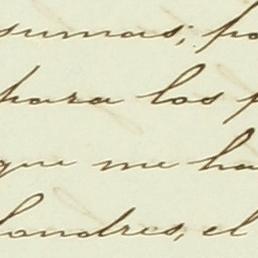 sumas; po
para los p
que me ha
Londres, el